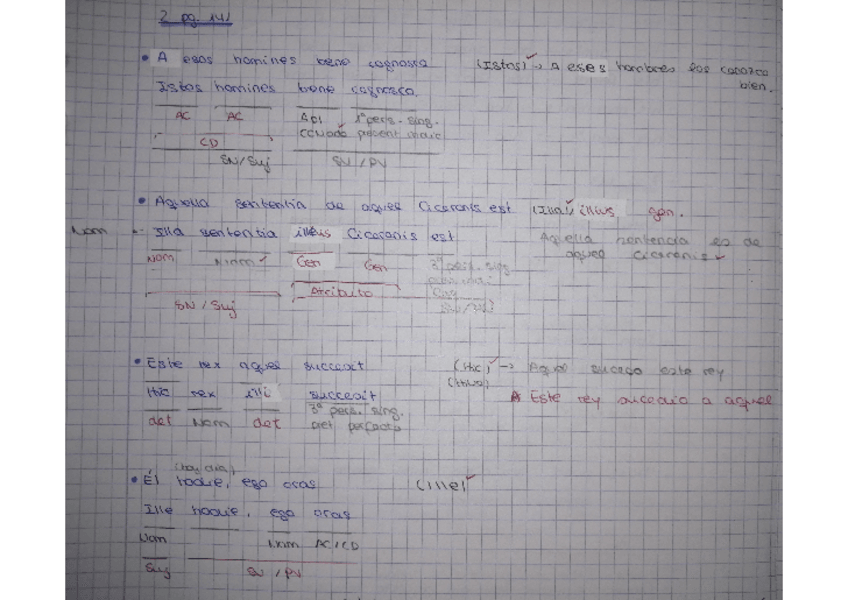 2 pg. 141
• A esos homines bene cognosco (Istos) → A eses hombres los conozco bien.
Istos homines bene cognosco.
AC AC Adv 1ª pers. sing.
CD CCModo present
SN/Suj SV/PV
• Aquella sententia de aquel Ciceronis est (Illa) illius gen.
Nom Illa sententia illius Ciceronis est Aquella sentencia es de aquel Ciceronis
Nom Nom Gen Gen 3ª pers. sing.
Atributo
SN/Suj
• Este rex aquel succesit (Hic) → Aquel sucedio este rey
Hic rex illi succesit A Este rey sucedió a aquel
det Nom det 3ª pers. sing.
pret perfecto
(hoy día)
• Él hodie, ego cras (Ille)
Ille hodie, ego cras
Nom Nom AC/CD
Suj SV/PV